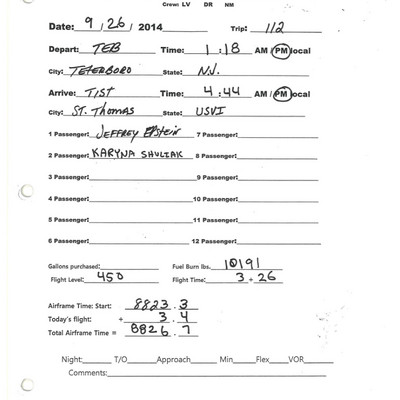 Crew: LV DR NM
Date: 9/26/2014 Trip: 112
Depart: TEB Time: 1:18 AM / PM local
City: TETERBORO State: N.J.
Arrive: TIST Time: 4:44 AM / PM local
City: ST. THOMAS State: USVI
1 Passenger: JEFFREY EPSTEIN 7 Passenger:
2 Passenger: KARYNA SHULIAK 8 Passenger:
3 Passenger: 9 Passenger:
4 Passenger: 10 Passenger:
5 Passenger: 11 Passenger:
6 Passenger: 12 Passenger:
Gallons purchased: Fuel Burn lbs. 10191
Flight Level: 450 Flight Time: 3+26
Airframe Time: Start: 8823.3
Today's flight: + 3.4
Total Airframe Time = 8826.7
Night: T/O Approach Min Flex VOR
Comments: